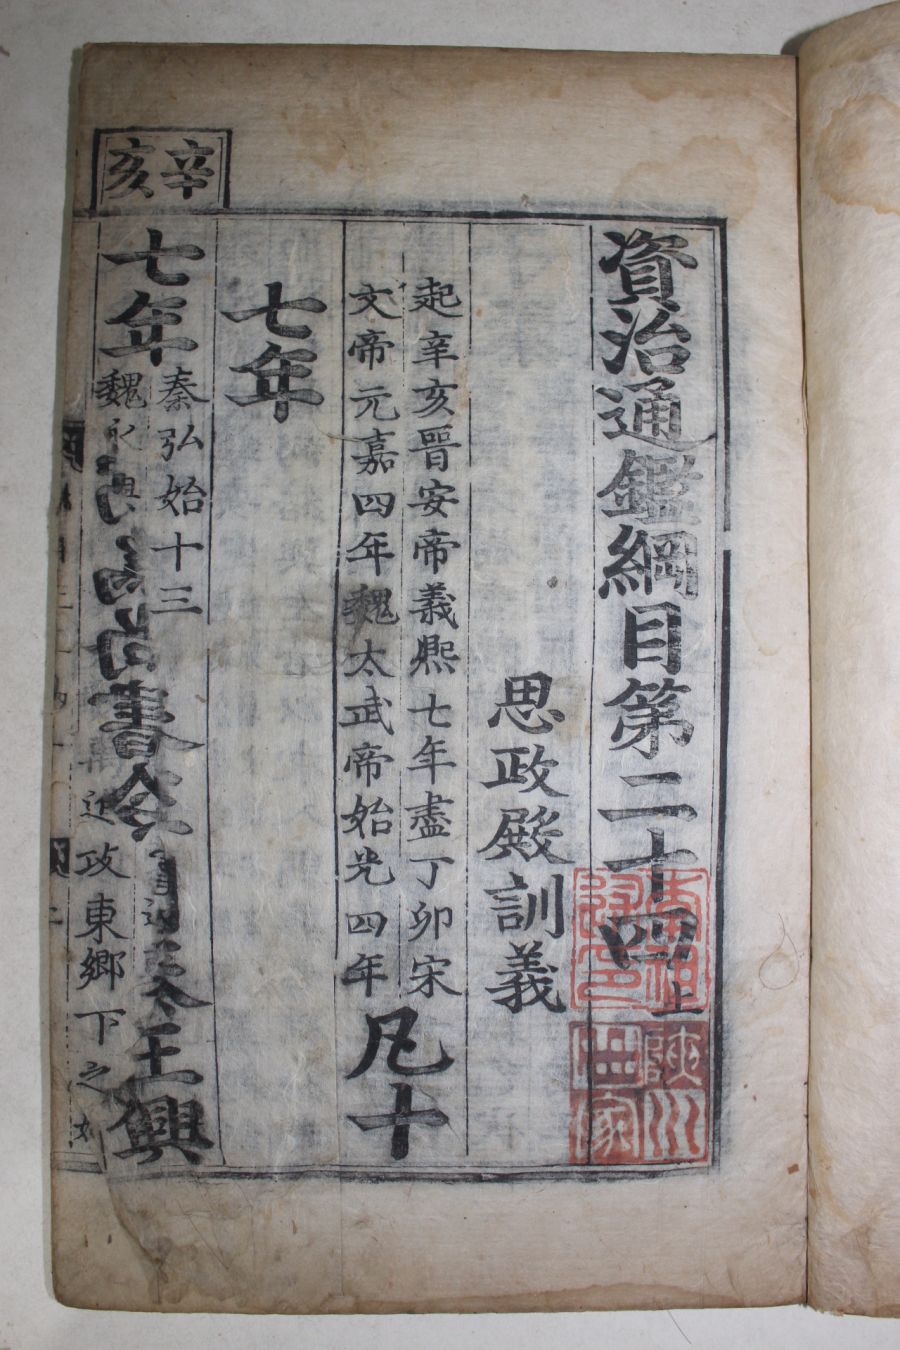 資治通鑑綱目第二十四上
思政殿訓義
起辛亥晉安帝義熙七年盡丁卯宋
文帝元嘉四年魏太武帝始光四年凡十
七年
辛亥
七年
秦弘始十三
魏永興
書
秦王興
近攻東鄉下之
陝川世家